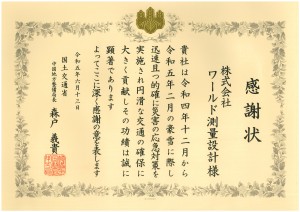 感謝状
株式会社
ワールド測量設計 様
貴社は令和四年十二月から
令和五年二月の豪雪に際し
迅速且つ的確に災害の応急対策を
実施され円滑な交通の確保に
大きく貢献しその功績は誠に
顕著であります
よってここに深く感謝の意を表します
令和五年六月十三日
国土交通省
中国地方整備局長
森戸義貴